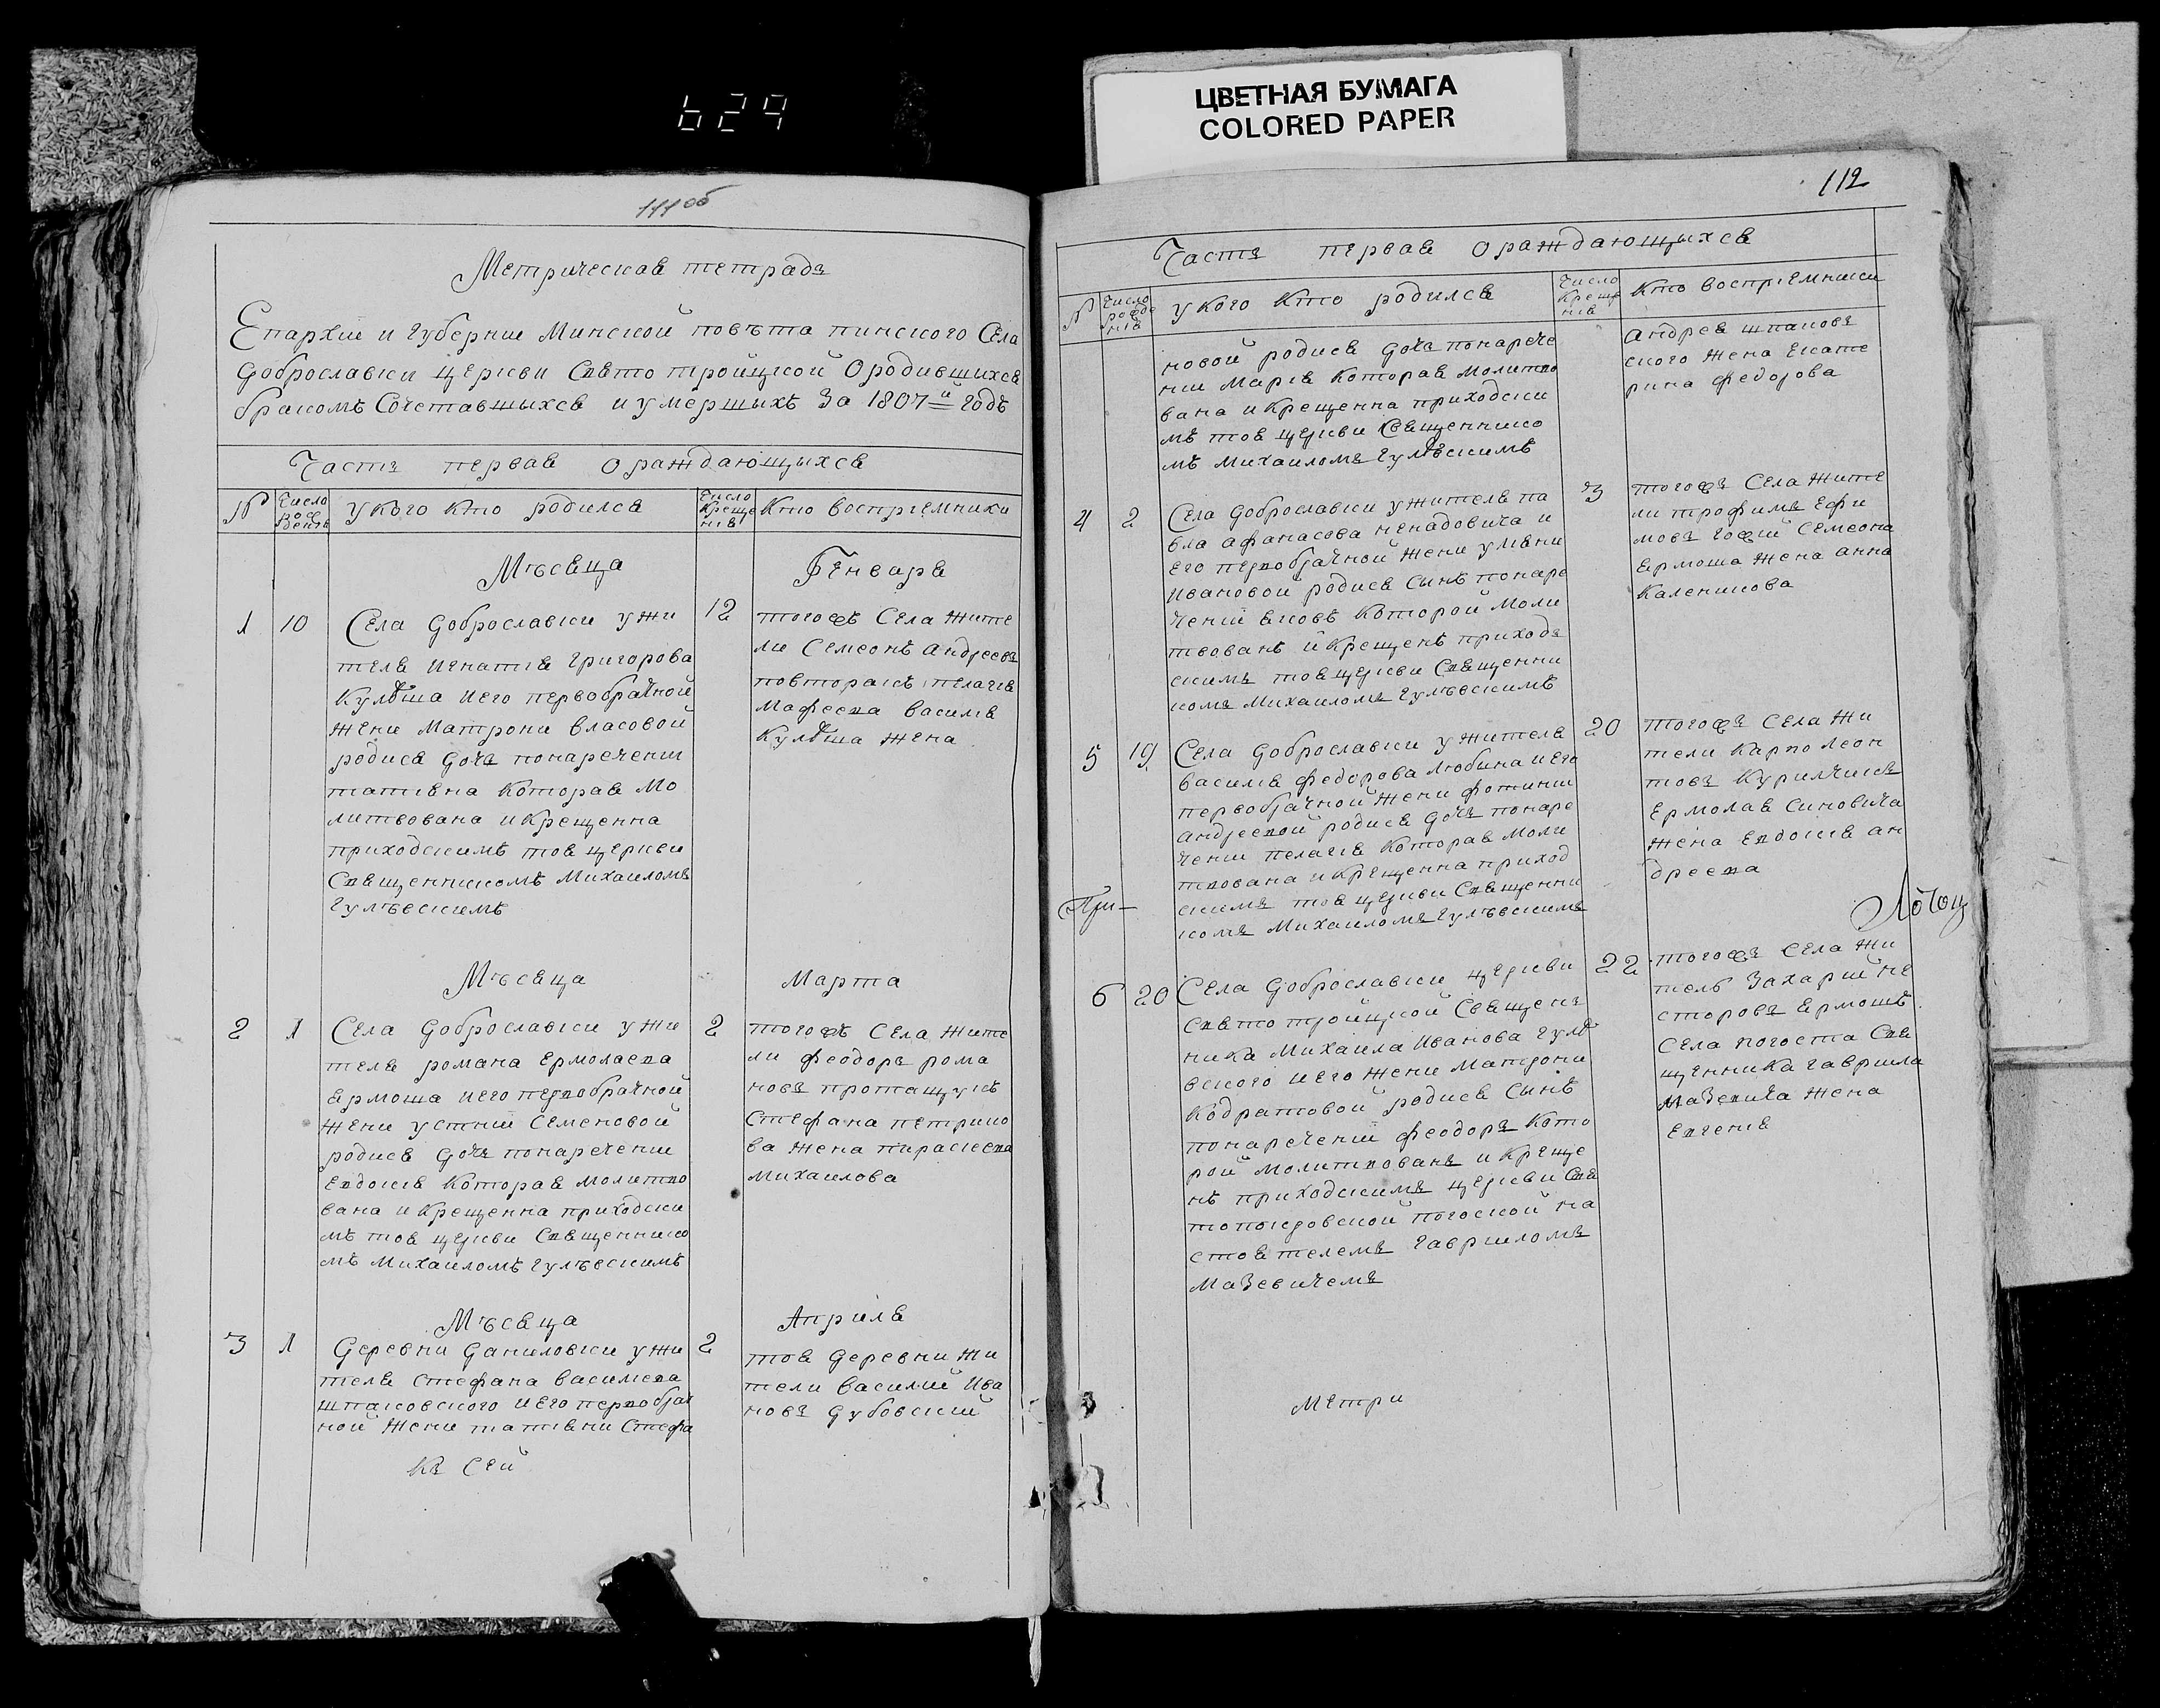 629
ЦВЕТНАЯ БУМАГА
COLORED PAPER
111 об
Метрическая тетрадь
Епархіи и губерніи Минской повѣта пинского Села
Доброславки церкви Свято тройцкой О родившихся
бракомъ Сочетавшыхся и умершыхъ За 1807й годъ
Часть первая О раждающыхся
№ Число рожденія У кого кто родился Число Крещенія Кто воспріемники
Мѣсяца Генваря
1 10 Села Доброславки у жи
теля Игнатія Григорова
Кулѣша и его первобрачной
жени Матрони Власовой
родися дочь по наречени
татіяна Которая мо
литвована и Крещенна
приходскимъ тоя церкви
Священникомъ Михаиломъ
Гулѣвскимъ
12 тогожъ Села жите
ли Семеонъ Андреевъ
повторакъ пелагія
Мафеева Василія
Кулѣша жена
Мѣсяца Марта
2 1 Села Доброславки у жи
теля романа Ермолаева
Ярмоша и его первобрачной
жени устиніи Семеновой
родися дочь по наречени
Евдокія Которая молитво
вана и Крещенна приходски
мъ тоя церкви Священнико
мъ Михаиломъ Гулѣвскимъ
2 тогожъ Села жите
ли феодоръ рома
новъ протащукъ
Стефана петрико
ва жена параскева
Михаилова
Мѣсяца Априля
3 1 Деревни Даниловки у жи
теля Стефана Василіева
шпаковского и его первобрач
ной жени татіяни Стефа
2 тоя деревни жи
тели Василій Ива
новъ дубовскій
Къ Сей
112
Часть первая О раждающыхся
№ Число рожденія У кого Кто родился Число Крещенія Кто воспріемники
новой родися дочь по нарече
нии Марія Которая Молитво
вана и Крещенна приходски
мъ тоя церкви Священнико
мъ Михаиломъ Гулѣвскимъ
Андрея шпаков
ского жена Екате
рина федорова
4 2 Села Доброславки у жителя па
вла Афанасова ненадовича и
его первобрачной жени уляни
Ивановой родися Сынъ по наре
ченіи Яковъ Которой моли
твованъ и Крещенъ приход
скимъ тоя церкви Священни
комъ Михаиломъ Гулѣвскимъ
3 тогожъ Села жите
ли трофимъ Ефи
мовъ Семеона
Ярмоша жена анна
Каленикова
5 19 Села Доброславки у жителя
Василія федорова Любина и его
первобрачной жени фотинии
Андреевой родися дочь по наре
чени пелагія Которая моли
твована и Крещенна приход
скимъ тоя церкви Священни
комъ Михаиломъ Гулѣвскимъ
20 тогожъ Села жи
тели Карпо Леон
товъ Курилчикъ
Ермолая Синовича
жена Евдокія ан
дреева
При—
6 20 Села Доброславки церкви
Свято тройцкой Священ
ника Михаила Иванова Гулѣ
вского и его жени Матрони
Кодратовой родися Сынъ
по нареченіи феодоръ Кото
рой молитвованъ и Креще
нъ приходскимъ церкви Свя
топокровской погоской на
стоятелемъ Гавриломъ
Мазевичемъ
22 тогожъ Села жи
тель Захарій не
сторовъ Ярмошъ
Села погоста Свя
щенника Гавриила
Мазевича жена
Евгенія
Метри